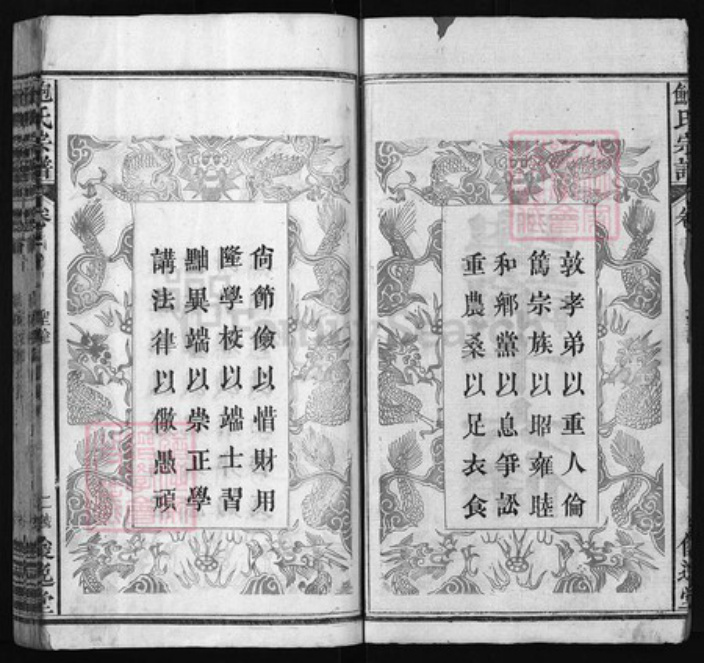 敦孝弟以重人倫
篤宗族以昭雍睦
和鄉黨以息爭訟
重農桑以足衣食
尙節儉以惜財用
隆學校以端士習
黜異端以崇正學
講法律以儆愚頑
鮑氏宗譜